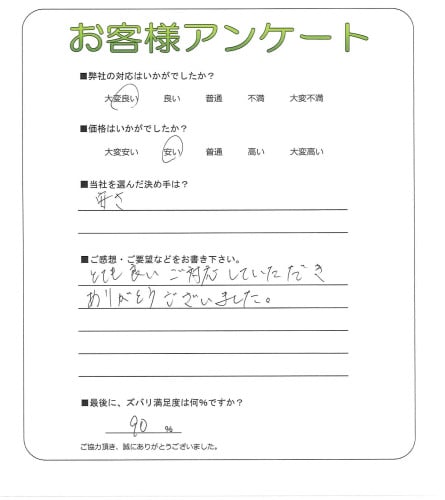 お客様アンケート
■弊社の対応はいかがでしたか?
大変良い 良い 普通 不満 大変不満
■価格はいかがでしたか?
大変安い 安い 普通 高い 大変高い
■当社を選んだ決め手は?
安さ
■ご感想・ご要望などをお書き下さい。
とても良いご対応していただき
ありがとうございました。
■最後に、ズバリ満足度は何%ですか?
90 %
ご協力頂き、誠にありがとうございました。